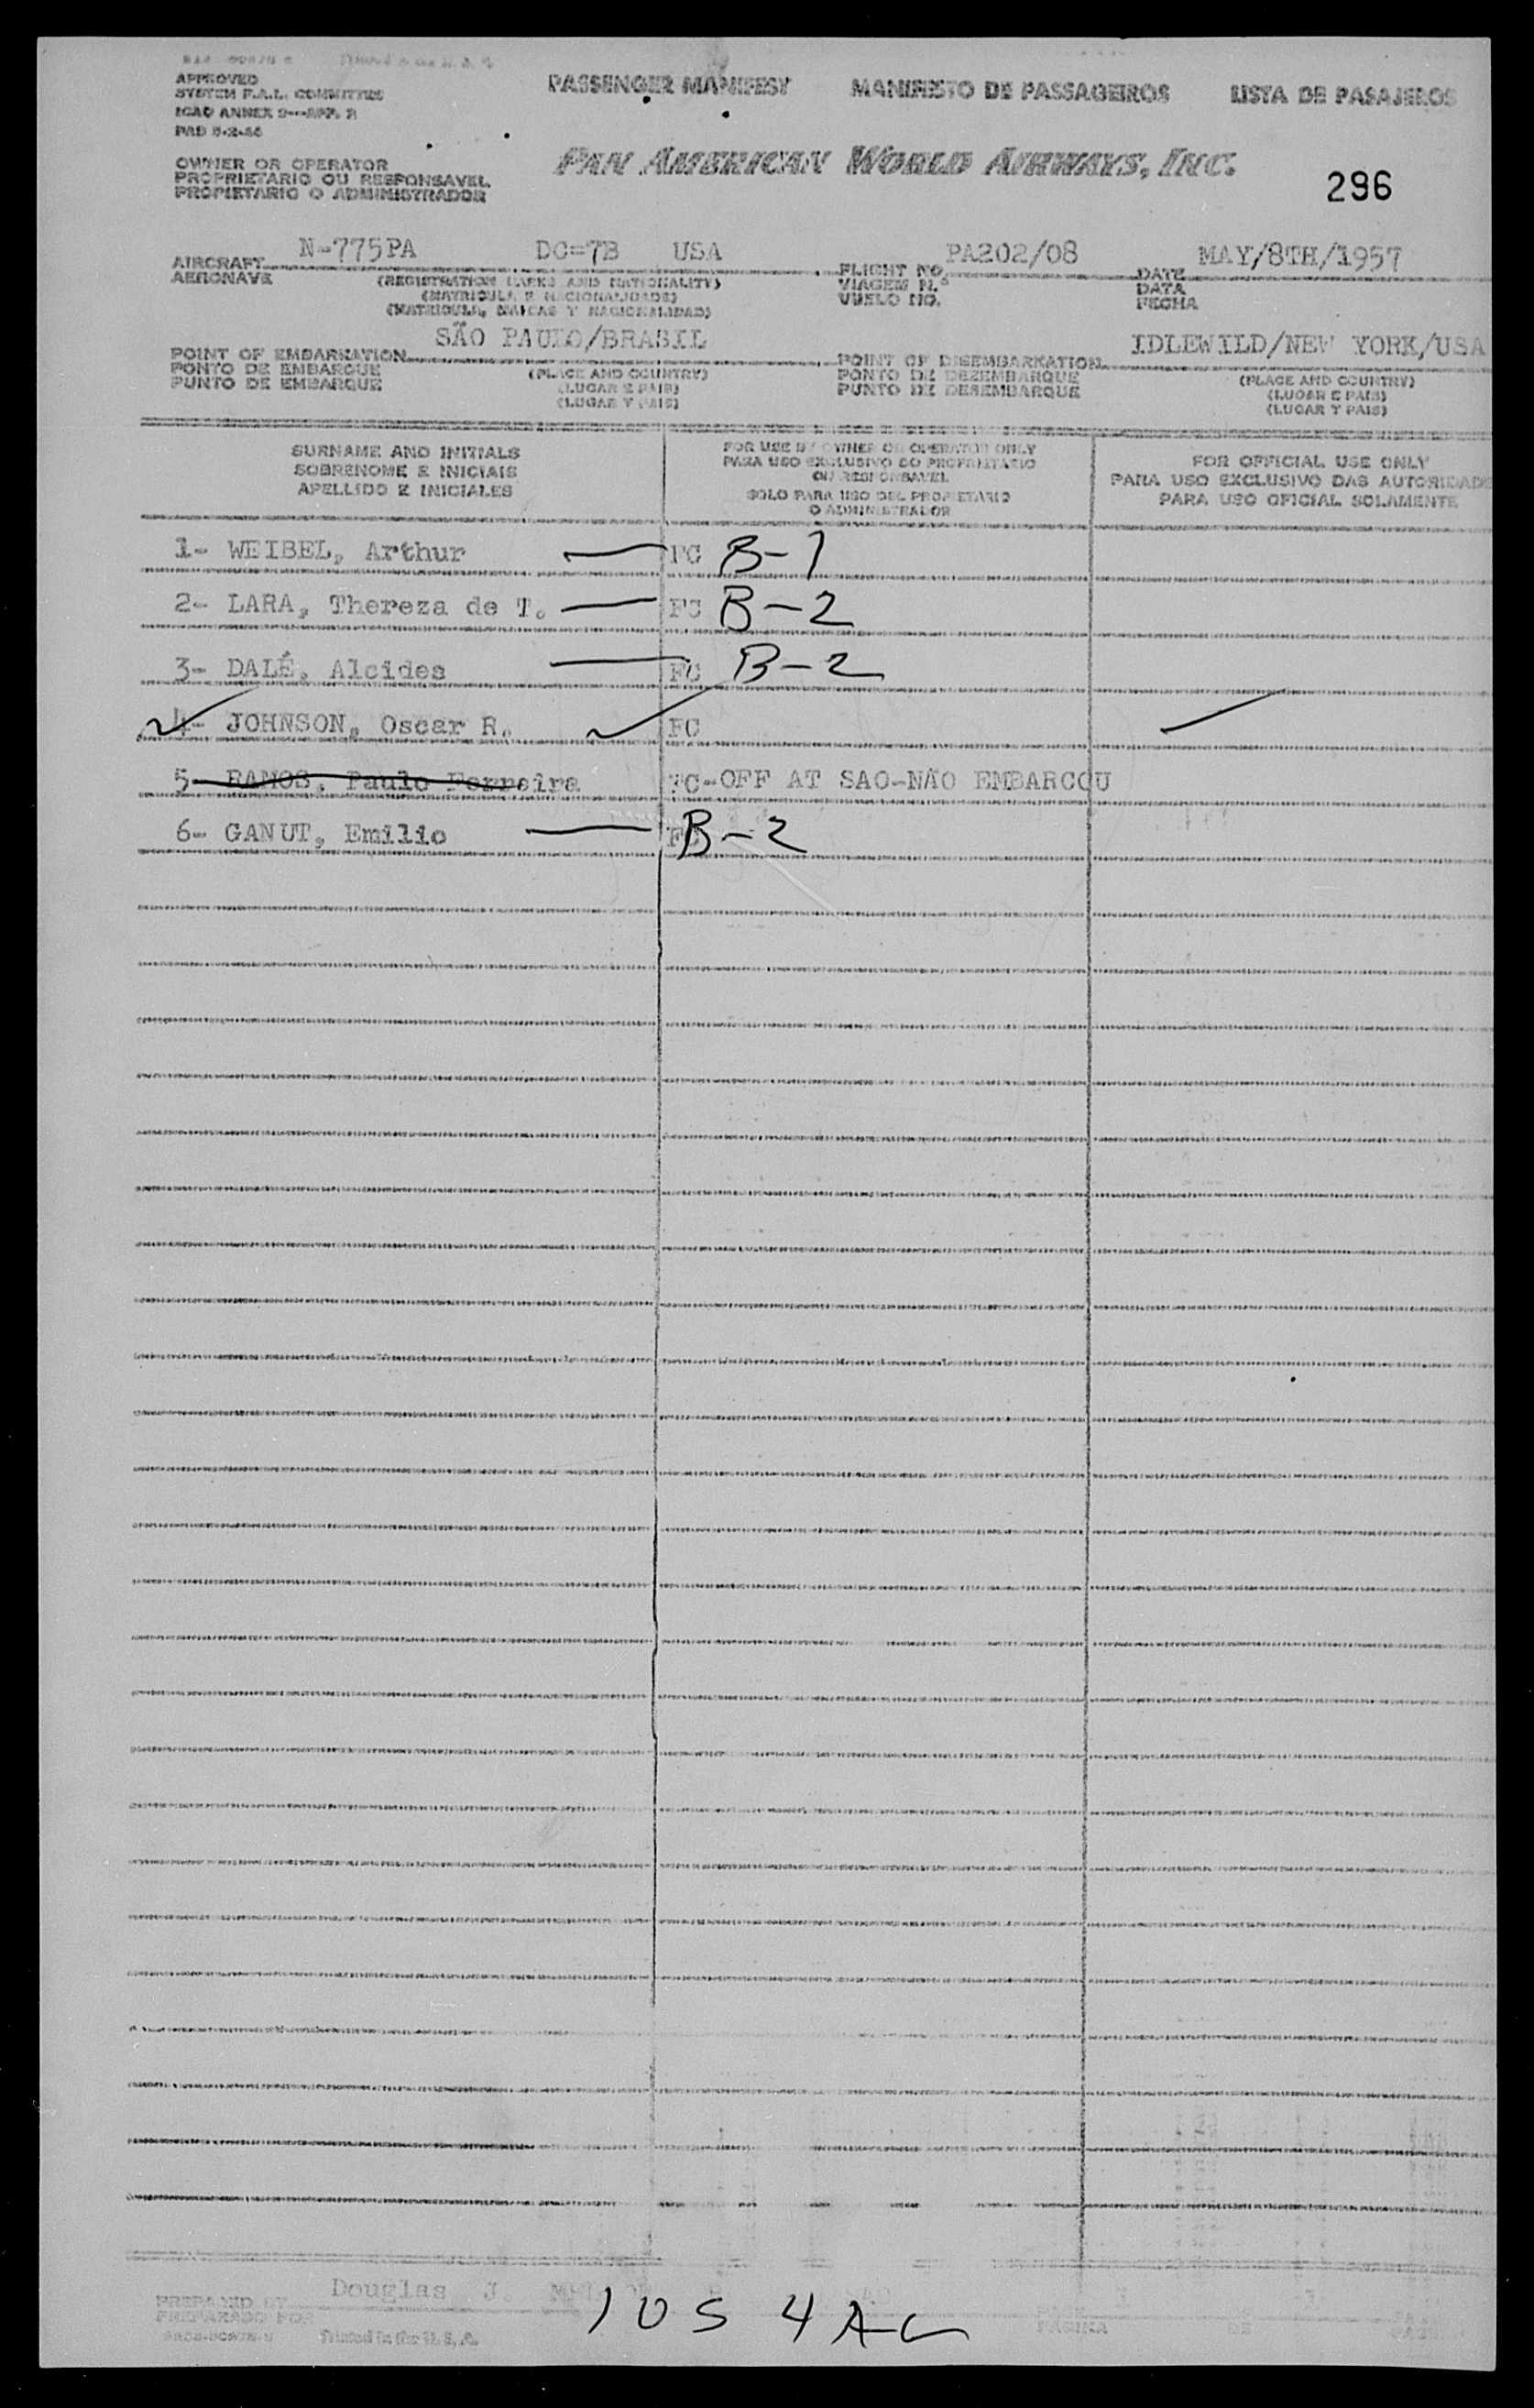 APPROVED
SYSTEM F.A.L. COMMITTEE
ICAO ANNEX 9---APP. 2
PASSENGER MANIFEST MANIFESTO DE PASSAGEIROS LISTA DE PASAJEROS
OWNER OR OPERATOR
PROPRIETARIO OU RESPONSAVEL
PROPIETARIO O ADMINISTRADOR
PAN AMERICAN WORLD AIRWAYS, INC.
296
AIRCRAFT N-775PA DC=7B USA FLIGHT NO. PA202/08 DATE MAY/8TH/1957
AERONAVE (REGISTRATION MARKS AND NATIONALITY) VIAGEM N.º DATA
(MATRICULA E NACIONALIDADE) VUELO NO. FECHA
(MATRICULA, MARCAS Y NACIONALIDAD)
POINT OF EMBARKATION SÃO PAULO/BRASIL POINT OF DISEMBARKATION IDLEWILD/NEW YORK/USA
PONTO DE EMBARQUE (PLACE AND COUNTRY) PONTO DE DEZEMBARQUE (PLACE AND COUNTRY)
PUNTO DE EMBARQUE (LUGAR E PAIS) PUNTO DE DESEMBARQUE (LUGAR E PAIS)
(LUGAR Y PAIS) (LUGAR Y PAIS)
SURNAME AND INITIALS
SOBRENOME E INICIAIS
APELLIDO E INICIALES
FOR USE BY OWNER OR OPERATOR ONLY
PARA USO EXCLUSIVO DO PROPRIETARIO
OU RESPONSAVEL
SOLO PARA USO DEL PROPIETARIO
O ADMINISTRADOR
FOR OFFICIAL USE ONLY
PARA USO EXCLUSIVO DAS AUTORIDADE
PARA USO OFICIAL SOLAMENTE
1- WEIBEL, Arthur FC B-1
2- LARA, Thereza de T. FC B-2
3- DALÉ, Alcides FC B-2
4- JOHNSON, Oscar R. FC
5- RAMOS, Paulo Ferreira FC-OFF AT SAO-NÃO EMBARCOU
6- GANUT, Emilio B-2
PREPARED BY Douglas J.
PREPARADO POR
Printed in the U.S.A.
1 US 4 AL
PAGINA DE